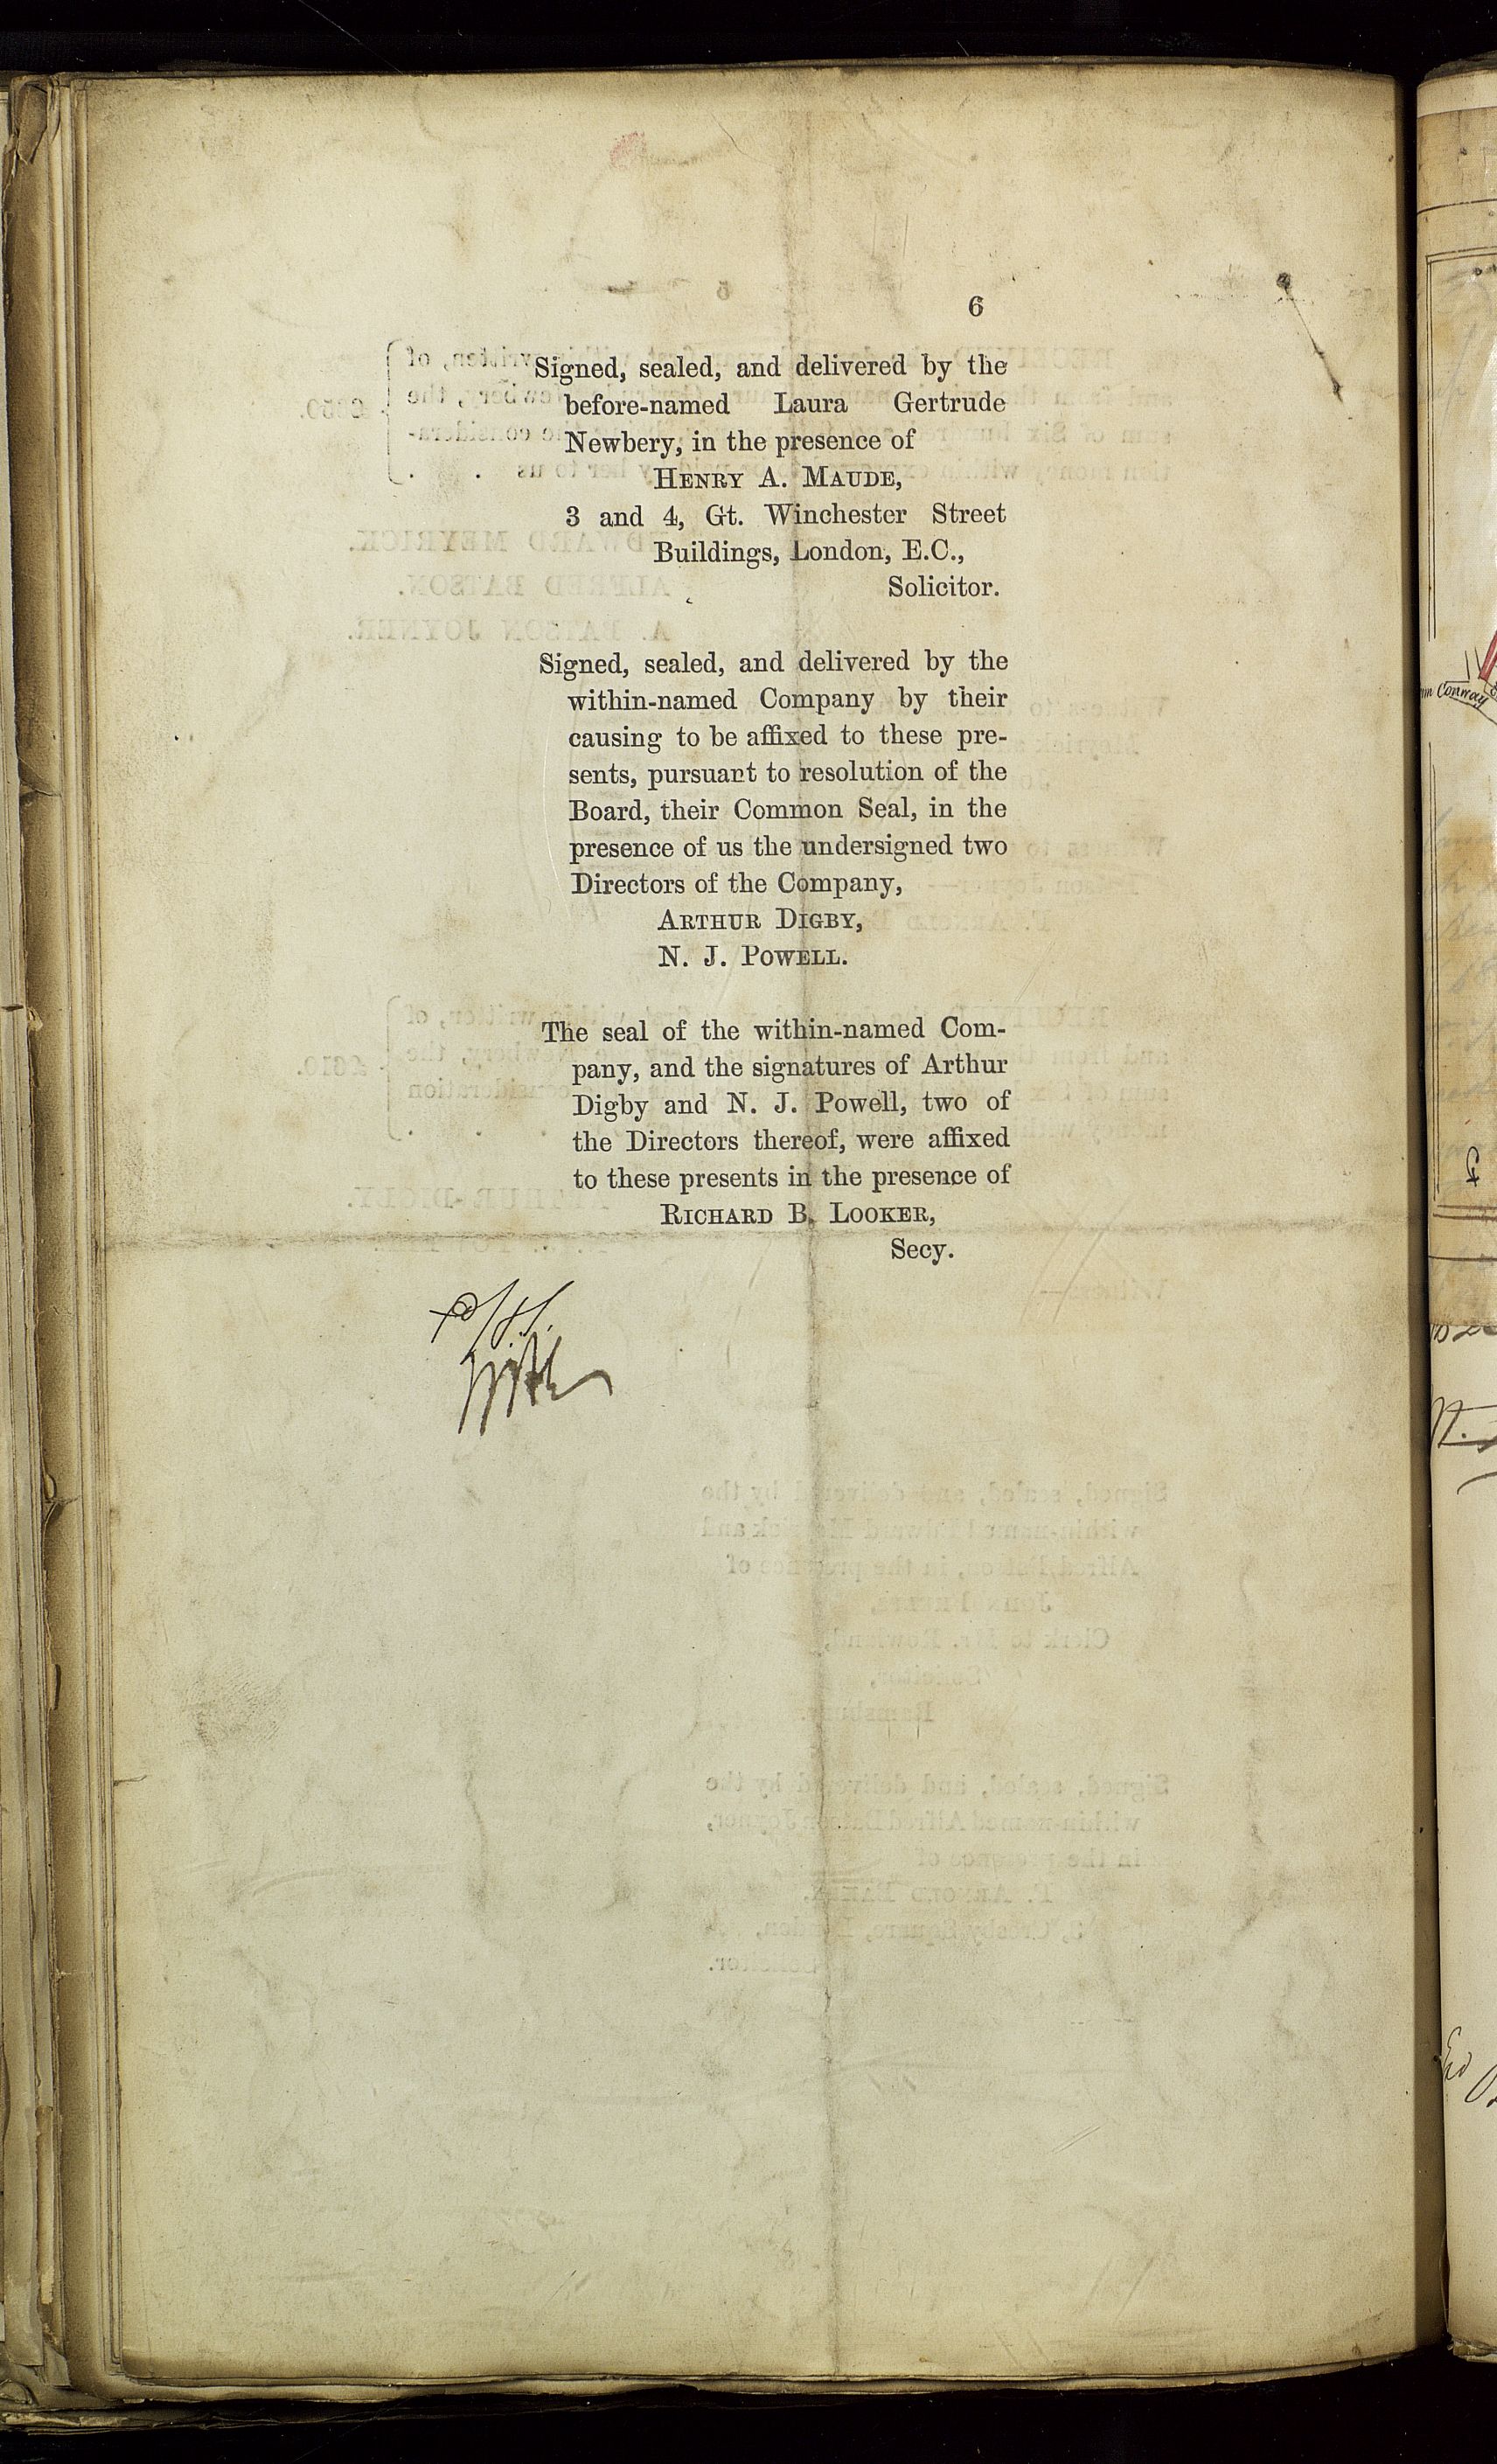 6
Signed, sealed, and delivered by the
before-named Laura Gertrude
Newbery, in the presence of
HENRY A. MAUDE,
3 and 4, Gt. Winchester Street
Buildings, London, E.C.,
Solicitor.
Signed, sealed, and delivered by the
within-named Company by their
causing to be affixed to these pre-
sents, pursuant to resolution of the
Board, their Common Seal, in the
presence of us the undersigned two
Directors of the Company,
ARTHUR DIGBY,
N. J. POWELL.
The seal of the within-named Com-
pany, and the signatures of Arthur
Digby and N. J. Powell, two of
the Directors thereof, were affixed
to these presents in the presence of
RICHARD B. LOOKER,
Secy.